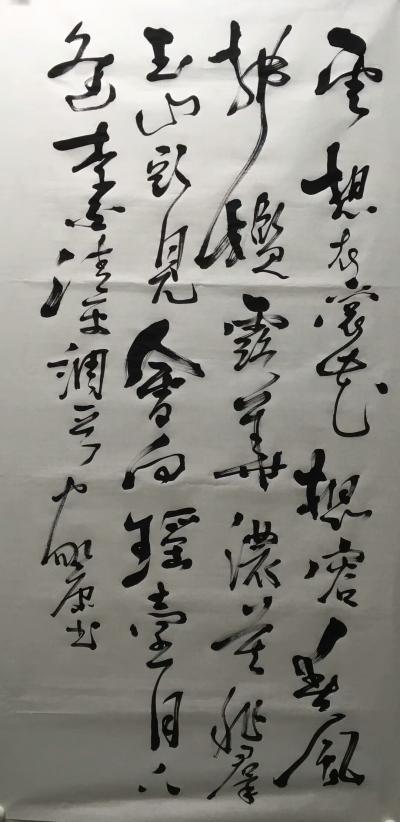 雲想衣裳花想容春風
拂檻露華濃若非羣
玉山頭見會向瑤臺月下
逢李白清平調
康书